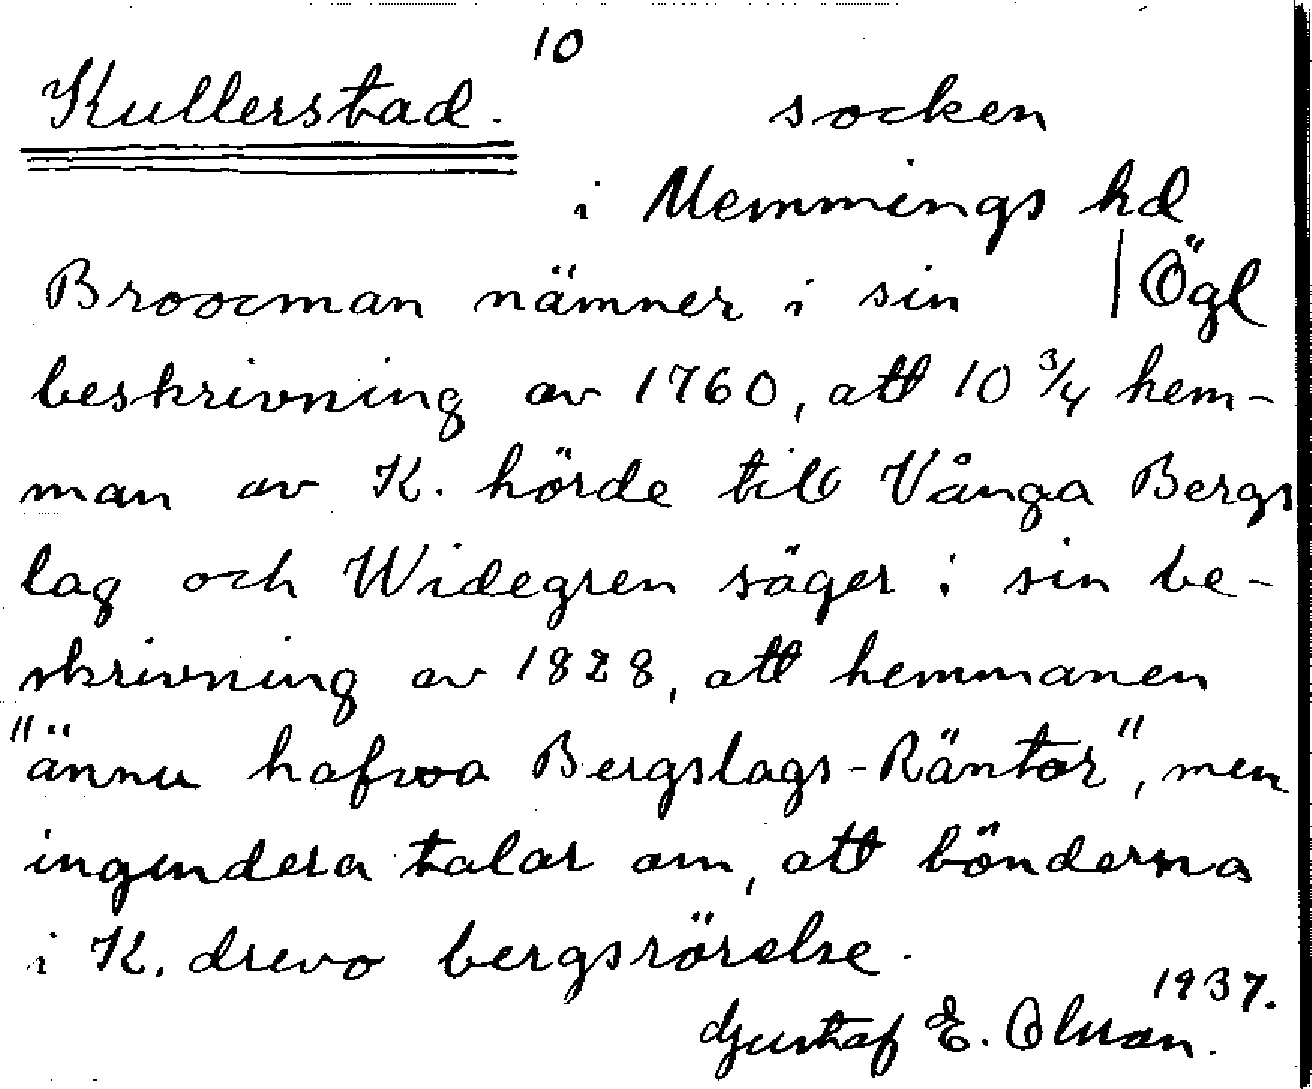 10
Kullerstad. socken
i Memmings hd
Broocman nämner i sin | Ögl
beskrivning av 1760, att 10 3/4 hem-
man av K. hörde till Vånga Bergs
lag och Widegren säger i sin be-
skrivning av 1828, att hemmanen
"ännu hafwa Bergslags-Räntor", men
ingendera talar om, att bönderna
i K. drevo bergsrörelse.
1937.
Gustaf E. Olsson.